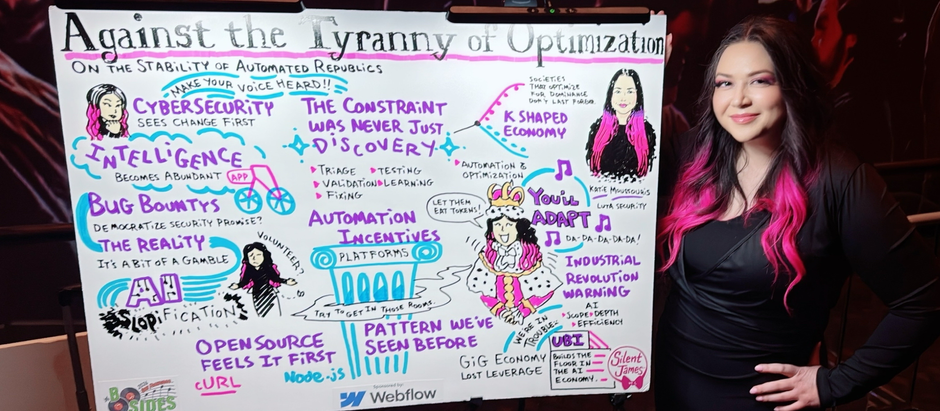 Against the Tyranny of Optimization
ON THE STABILITY OF AUTOMATED REPUBLICS
MAKE YOUR VOICE HEARD!!
CYBERSECURITY
SEES CHANGE FIRST
INTELLIGENCE
BECOMES ABUNDANT
APP
BUG BOUNTYS
DEMOCRATIZE SECURITY PROMISE?
THE REALITY
IT'S A BIT OF A GAMBLE
VOLUNTEER?
AI
SLOPIFICATION
OPEN SOURCE
FEELS IT FIRST
cURL
Node.js
THE CONSTRAINT
WAS NEVER JUST
DISCOVERY
TRIAGE
TESTING
VALIDATION
LEARNING
FIXING
AUTOMATION
INCENTIVES
PLATFORMS
TRY TO GET IN THOSE ROOMS.
PATTERN WE'VE
SEEN BEFORE
GIG ECONOMY
LOST LEVERAGE
SOCIETIES
THAT OPTIMIZE
FOR DOMINANCE
DON'T LAST FOREVER
K SHAPED
ECONOMY
AUTOMATION &
OPTIMIZATION
KATIE MOUSSOURIS
LUTA SECURITY
LET THEM
EAT TOKENS!
YOU'LL
ADAPT
DA-DA-DA-DA-DA!
INDUSTRIAL
REVOLUTION
WARNING
AI
SCOPE
DEPTH
EFFICIENCY
WE'RE IN
TROUBLE
UBI
BUILDS THE
FLOOR IN
THE AI
ECONOMY.
Silent
James
BSIDES
Sponsored by:
Webflow